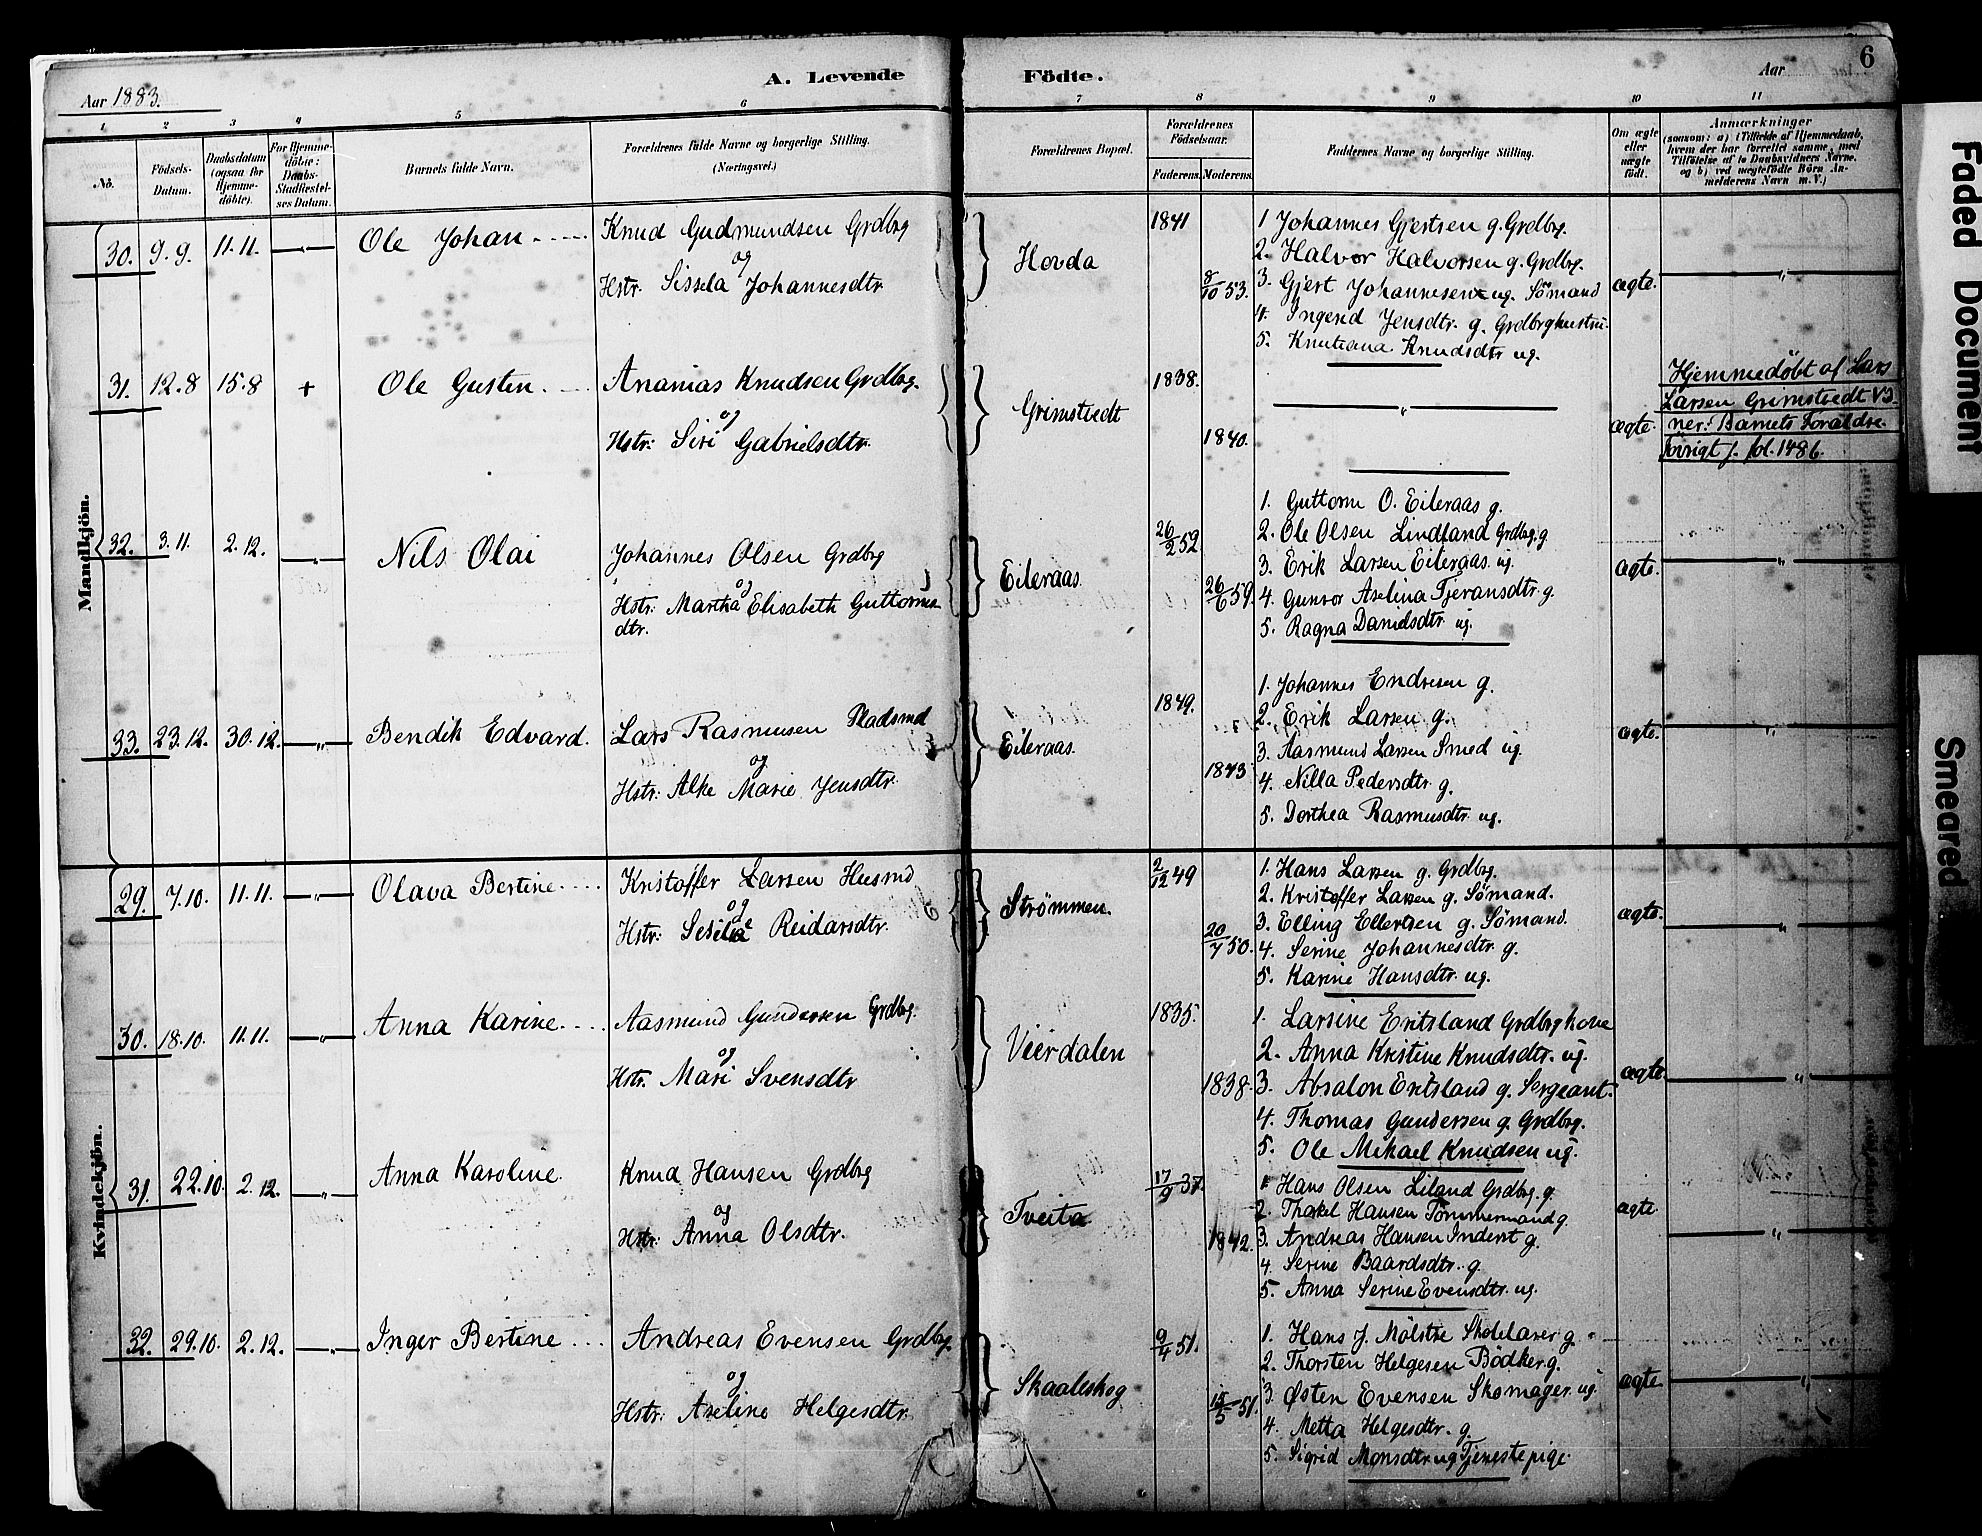 6
A. Levende Födte.
Aar 1883.
Aar
1 2 3 4 5 6 7 8 9 10 11
No.
Födsels-Datum.
Daabsdatum (ogsaa for Hjemme-döbte).
For Hjemme-döbte: Daabs-Stadfæstel-ses Datum.
Barnets fulde Navn.
Forældrenes fulde Navne og borgerlige Stilling. (Næringsvei.)
Forældrenes Bopæl.
Forældrenes Födselsaar.
Faderens. Moderens.
Faddernes Navne og borgerlige Stilling.
Om ægte eller uægte født.
Anmærkninger
(saasom: a) i Tilfælde af Hjemmedaab, hvem der har forrettet samme, med Tilföielse af to Daabsvidners Navne. og b) ved uægtefödte Börn An-melderens Navn m. V.)
Mandkjön.
30. 9.9. 11.11. —"— Ole Johan
Knud Gudmundsen Grdbrg
og
Hstr: Sissela Johannesdtr.
Hovda
1841
8/10 53.
1 Johannes Gjertsen g. Grdbrg.
2. Halvor Halvorsen g. Grdbrg.
3. Gjert Johannesen ug. Sömand
4. Ingerid Jensdtr. g. Grdbrghustru.
5. Knutiana Knudsdtr ug.
ægte. —"—
31. 12.8 15.8 + Ole Gusten.
Ananias Knudsen Grdbrg.
og
Hstr: Siri Gabrielsdtr.
Grimstvedt
1838.
1840.
—"—
ægte.
Hjemmedöbt af Lars
Larsen Grimstvedt Vd-
ner: Barnets Foraldre.
forrigt j. fol. 1486.
32. 3.11. 2.12. —"— Nils Olai
Johannes Olsen Grdbrg
og
Hstr: Martha Elisabeth Guttorms
dtr.
Eileraas.
26/2 52
26/6 59.
1. Guttorm O. Eileraas g.
2. Ole Olsen Lindland Grdbrg. g
3. Erik Larsen Eileraas ug.
4. Gunvor Aselina Tjeransdtr. g.
5. Ragna Danielsdtr ug.
ægte. —"—
33. 23.12. 30.12. —"— Bendik Edvard.
Lars Rasmusen Pladsmd
og
Hstr: Alke Marie Jensdtr.
Eileraas.
1849.
1843
1. Johannes Endresen g.
2. Erik Larsen g.
3. Aasmund Larsen Smed ug.
4. Nilla Pedersdtr. g.
5. Dorthea Rasmusdtr. ug.
ægte. —"—
Kvindekjön.
29. 7.10. 11.11. —"— Olava Bertine
Kristoffer Larsen Husmd
og
Hstr: Reidarsdtr.
Strömmen.
2/12 49
20/7 50.
1. Hans Larsen g. Grdbrg.
2. Kristoffer Larsen g. Sömand.
3. Elling Ellertsen g. Sömand.
4. Serine Johannesdtr. g.
5. Karine Hansdtr. ug.
ægte. —"—
30. 18.10. 11.11. —"— Anna Karine.
Aasmund Gundersen Grdbrg.
og
Hstr. Mari Svensdtr
Veierdalen
1835.
1838.
1. Larsine Eritsland Grdbrgkone
2. Anna Kristine Knudsdtr. ug.
3. Absalon Eritsland g. Sergeant.
4. Thomas Gundersen g. Grdbrg.
5. Ole Mikael Knudsen ug.
ægte —"—
31. 22.10. 2.12. —"— Anna Karoline
Knud Hansen Grdbrg
og
Hstr: Anna Olsdtr.
Tveita
17/9 37.
1842.
1. Hans Olsen Liland Grdbrg. g.
2. Thakel Hansen Tömmermand g.
3. Andreas Hansen Inderst g.
4. Serine Baardsdtr. g.
5. Anna Serine Evensdtr. ug.
ægte —"—
32. 29.10. 2.12. —"— Inger Bertine
Andreas Evensen Grdbrg.
og
Hstr: Aseline Helgesdtr.
Skaaleskog
9/4 51.
15/5 51.
1. Hans J. Mölstre Skolelærer g.
2. Thorsten Helgesen Bödker. g.
3. Østen Evensen Skomager. ug.
4. Metta Helgesdtr. g.
5. Sigrid Monsdtr ug Tjenestepige
ægte —"—
Faded Document
Smeared